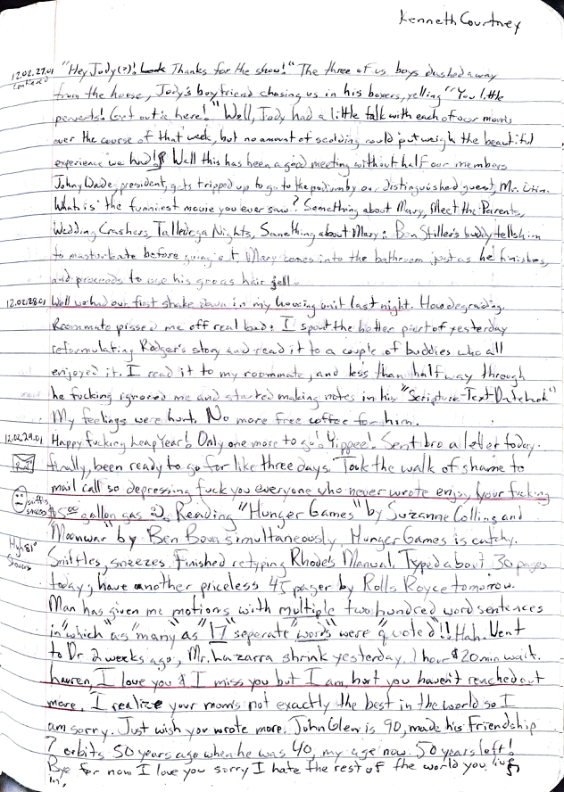 Kenneth Courtney
12.02.27.01 "Hey Jody(?)! Look Thanks for the show!" The three of us boys dashed away
from the house, Jody's boyfriend chasing us in his boxers, yelling "You little
perverts! Get out of here!" Well, Jody had a little talk with each of our moms
over the course of that week, but no amount of scolding could outweigh the beautiful
experience we had! Well this has been a good meeting without half our members
John Dade, president, gets tripped up to go to the podium by our distinguished guest, Mr.
What is the funniest movie you ever saw? Something about Mary, Meet the Parents,
Wedding Crashers, Talledega Nights, Something about Mary: Ben Stiller's buddy tells him
to masturbate before going out Mary comes into the bathroom just as he finishes,
and proceeds to use his as hair jell.
12.02.28.01 Well we had our first shake down in my housing unit last night. How degrading.
Roommate pissed me off real bad: I spent the better part of yesterday
reformulating Rodger's story and read it to a couple of buddies who all
enjoyed it. I read it to my roommate, and less than half way through
he fucking ignored me and started making notes in his "Scripture Text Datebook"
My feelings were hurt. No more free coffee for him.
12.02.29.01 Happy fucking Leap Year! Only one more to go! Yippee! Sent bro a letter today.
finally, been ready to go for like three days. Took the walk of shame to
mail call so depressing fuck you everyone who never wrote enjoy your fucking
sniffles $5.00 gallon gas. Reading "Hunger Games" by Suzanne Collins and
"Moonwar" by Ben Bova simultaneously. Hunger Games is catchy.
High 81° Showers Sniffles, sneezes. Finished retyping Rhode's Manual. Typed about 30 pages
today; have another priceless 45 pager by Rolls Royce tomorrow.
Man has given me motions with multiple two hundred word sentences
in "which" "as" "many" as "17" seperate "words" were "quoted"!! Hah. Went
to Dr 2 weeks ago, Mr. Lazarra shrink yesterday. 1 hour & 20 min wait.
Lauren, I love you & I miss you but I am hurt you haven't reached out
more, I realize your mom's not exactly the best in the world so I
am sorry. Just wish you wrote more. John Glenn is 90, made his Friendship
7 orbits 50 years ago when he was 40, my age now. 50 years left!
Bye for now I love you sorry I hate the rest of the world you live
in,